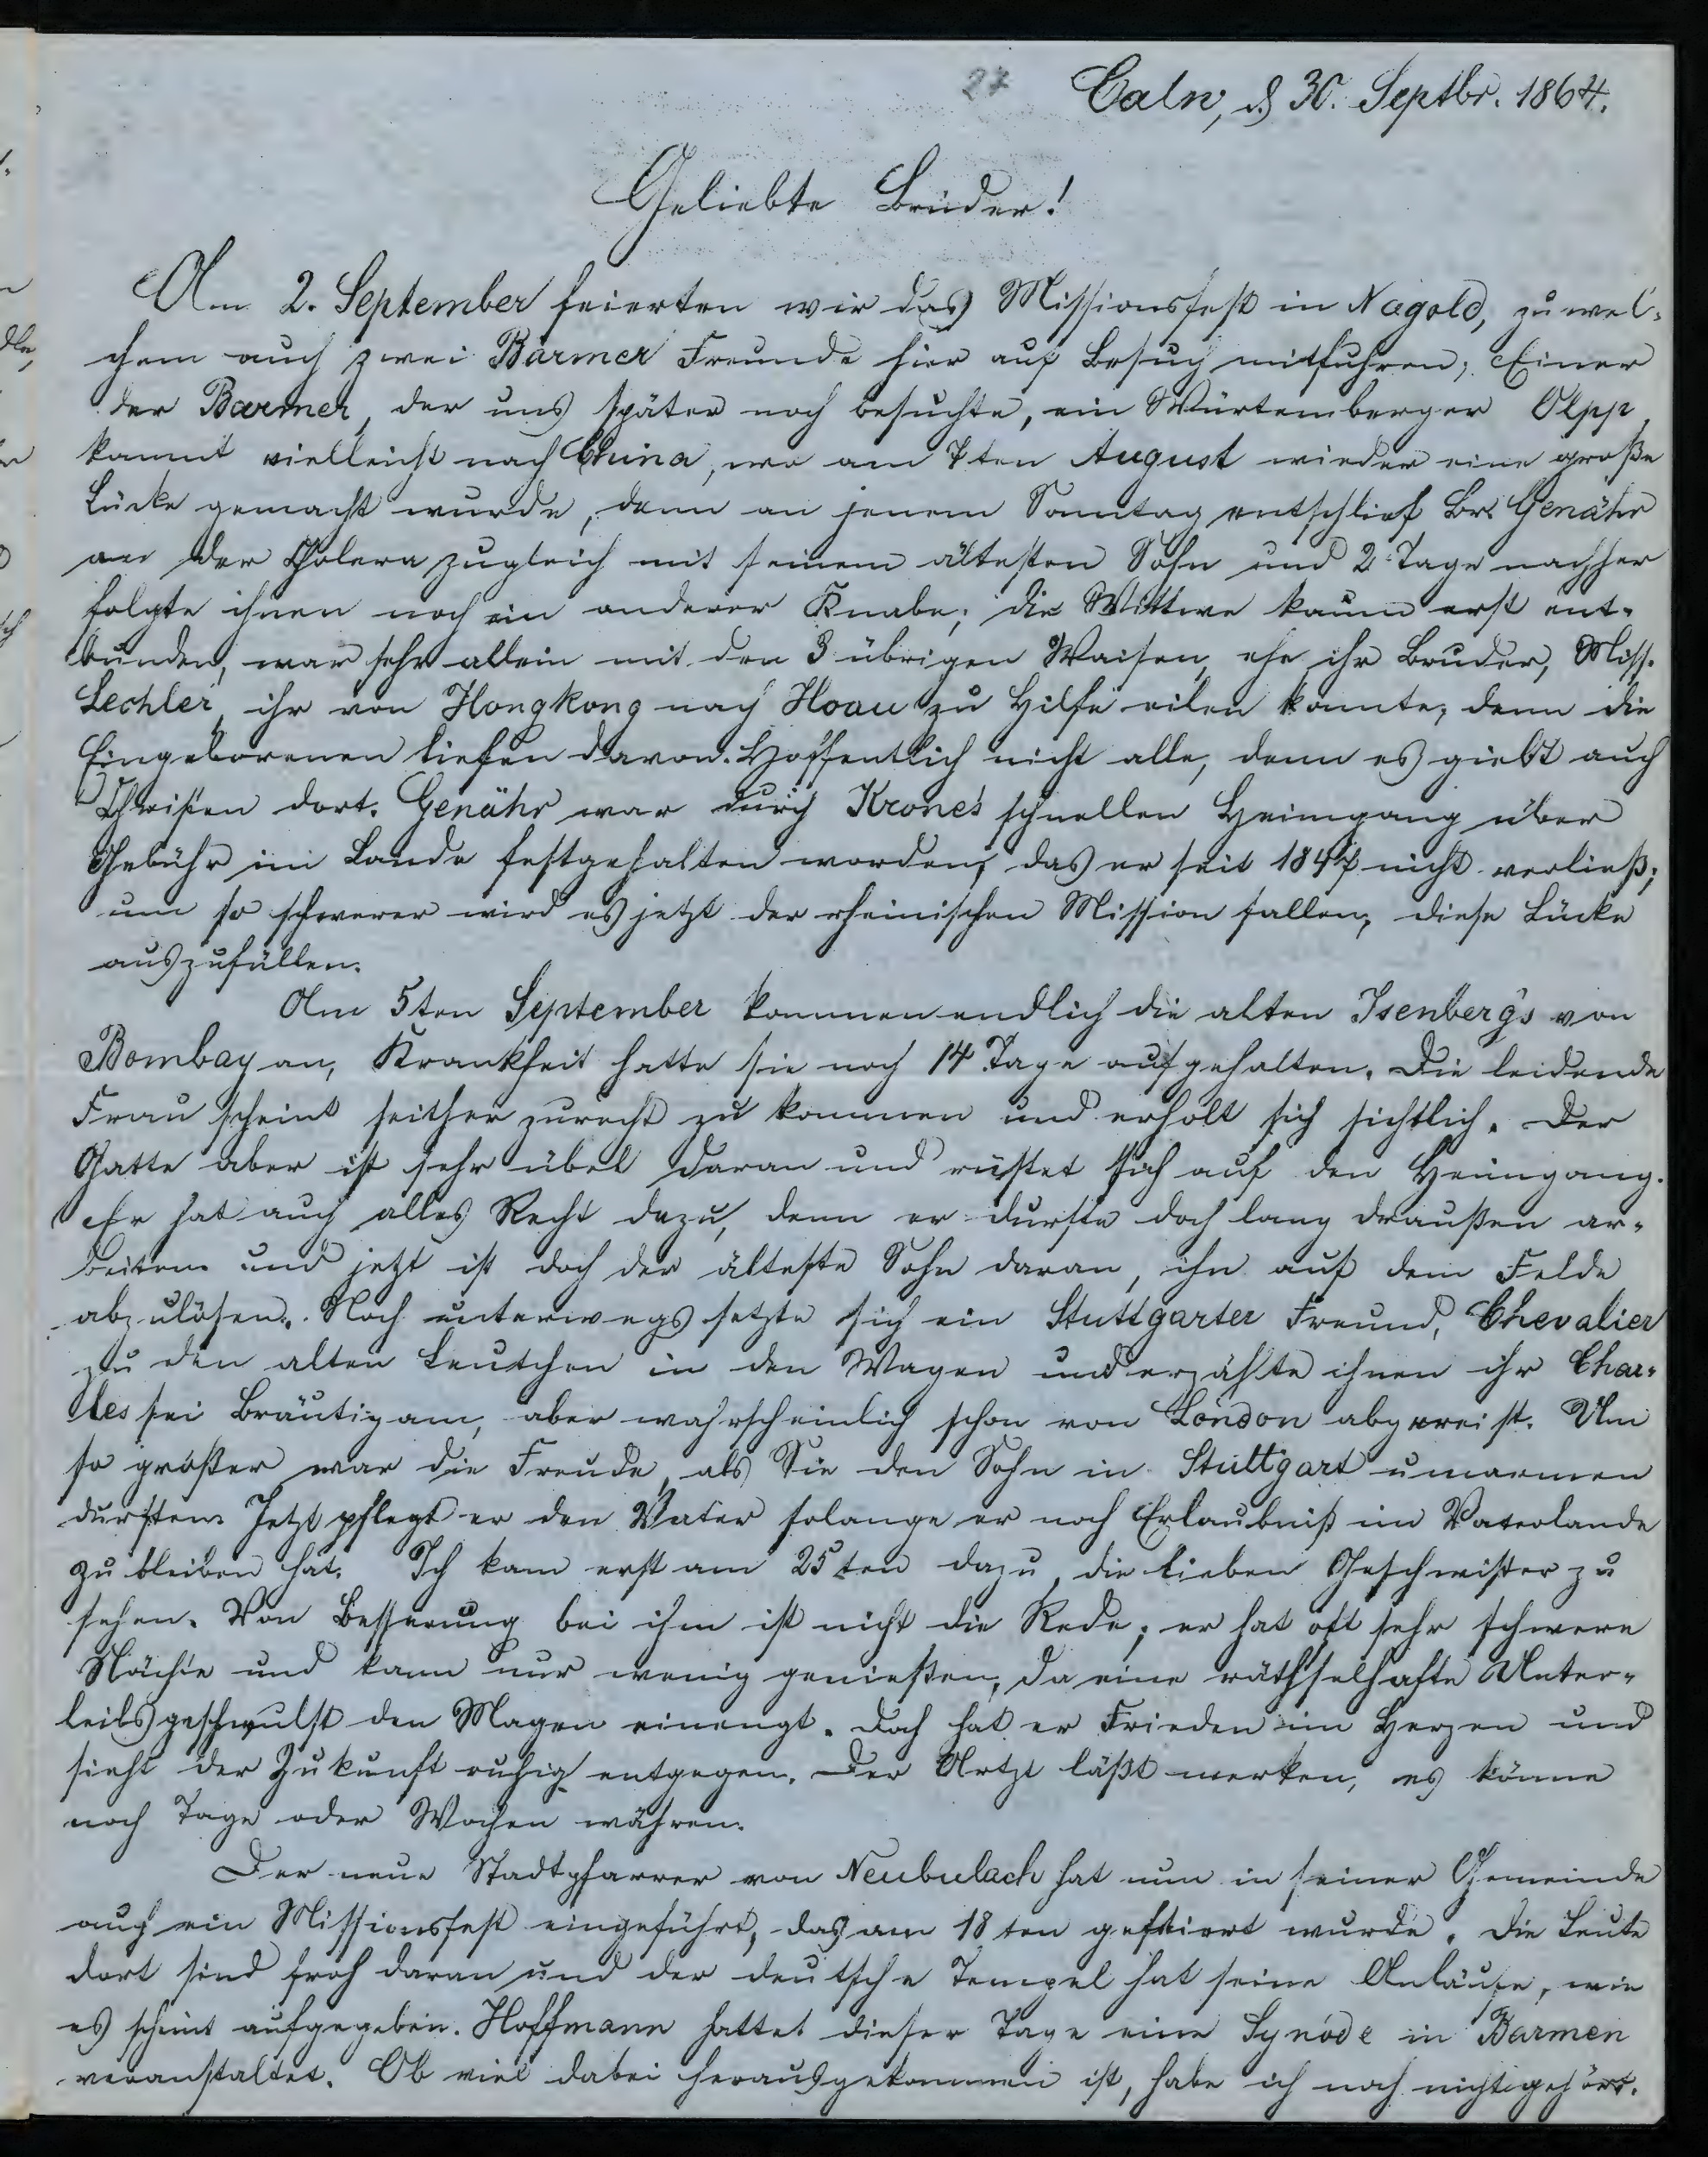 27
Calw, d 30. Septbr. 1864.
Geliebte Brüder!
Am 2. September feierten wir das Missionsfest in Nagold, zu wel-
chem auch zwei Barmer Freunde hier auf Besuch mitfuhren; Einer
der Barmer, der uns später noch besuchte, ein Würtemberger Olpp,
kommt vielleicht nach China, wo am 7ten August wieder eine große
Lücke gemacht wurde, denn an jenem Sonntag entschlief Br. Genähr
an der Cholera zugleich mit seinem ältesten Sohn und 2 Tage nachher
folgte ihnen noch ein anderer Knabe; die Wittwe kaum erst ent-
bunden, war sehr allein mit den 3 übrigen Waisen, ehe ihr Bruder, Miss.
Lechler, ihr von Hongkong nach Hoau zu Hilfe eilen konnte, denn die
Eingeborenen liefen davon. Hoffentlich nicht alle, denn es giebt auch
Christen dort. Genähr war durch Krone's schnellen Heimgang über
Gebühr im Lande festgehalten worden, das er seit 1847 nicht verließ;
um so schwerer wird es jetzt der rheinischen Mission fallen, diese Lücke
auszufüllen.
Am 5ten September kommen endlich die alten Isenbergs von
Bombay an, Krankheit hatte sie noch 14 Tage aufgehalten. Die leidende
Frau scheint seither zurecht zu kommen und erholt sich sichtlich. Der
Gatte aber ist sehr übel daran und rüstet sich auf den Heimgang.
Er hat auch alles Recht dazu, denn er durfte doch lang draußen ar-
beiten und jetzt ist doch der älteste Sohn daran, ihn auf dem Felde
abzulösen. Noch unterwegs setzte sich ein Stuttgarter Freund, Chevalier
zu den alten Leutchen in den Wagen und erzählte ihnen ihr Char-
les sei Bräutigam, aber wahrscheinlich schon von London abgereist. Um
so größer war die Freude, als Sie den Sohn in Stuttgart umarmen
durften. Jetzt pflegt er den Vater solange er noch Erlaubniß im Vaterlande
zu bleiben hat. Ich kam erst am 25ten dazu, die lieben Geschwister zu
sehen. Von Besserung bei ihm ist nicht die Rede; er hat oft sehr schwere
Nächte und kann nur wenig genießen, da eine räthselhafte Unter-
leibsgeschwulst den Magen einengt. Doch hat er Frieden im Herzen und
sieht der Zukunft ruhig entgegen. Der Artzt läßt merken, es könne
noch Tage oder Wochen währen.
Der neue Stadtpfarrer von Neubulach hat nun in seiner Gemeinde
auch ein Missionsfest eingeführt, das am 18ten gefeiert wurde. Die Leute
dort sind froh daran und der deutsche Tempel hat seine Anläufe, wie
es scheint aufgegeben. Hoffmann hattet dieser Tage eine Synode in Barmen
veranstaltet. Ob viel dabei herausgekommen ist, habe ich noch nicht gehört.